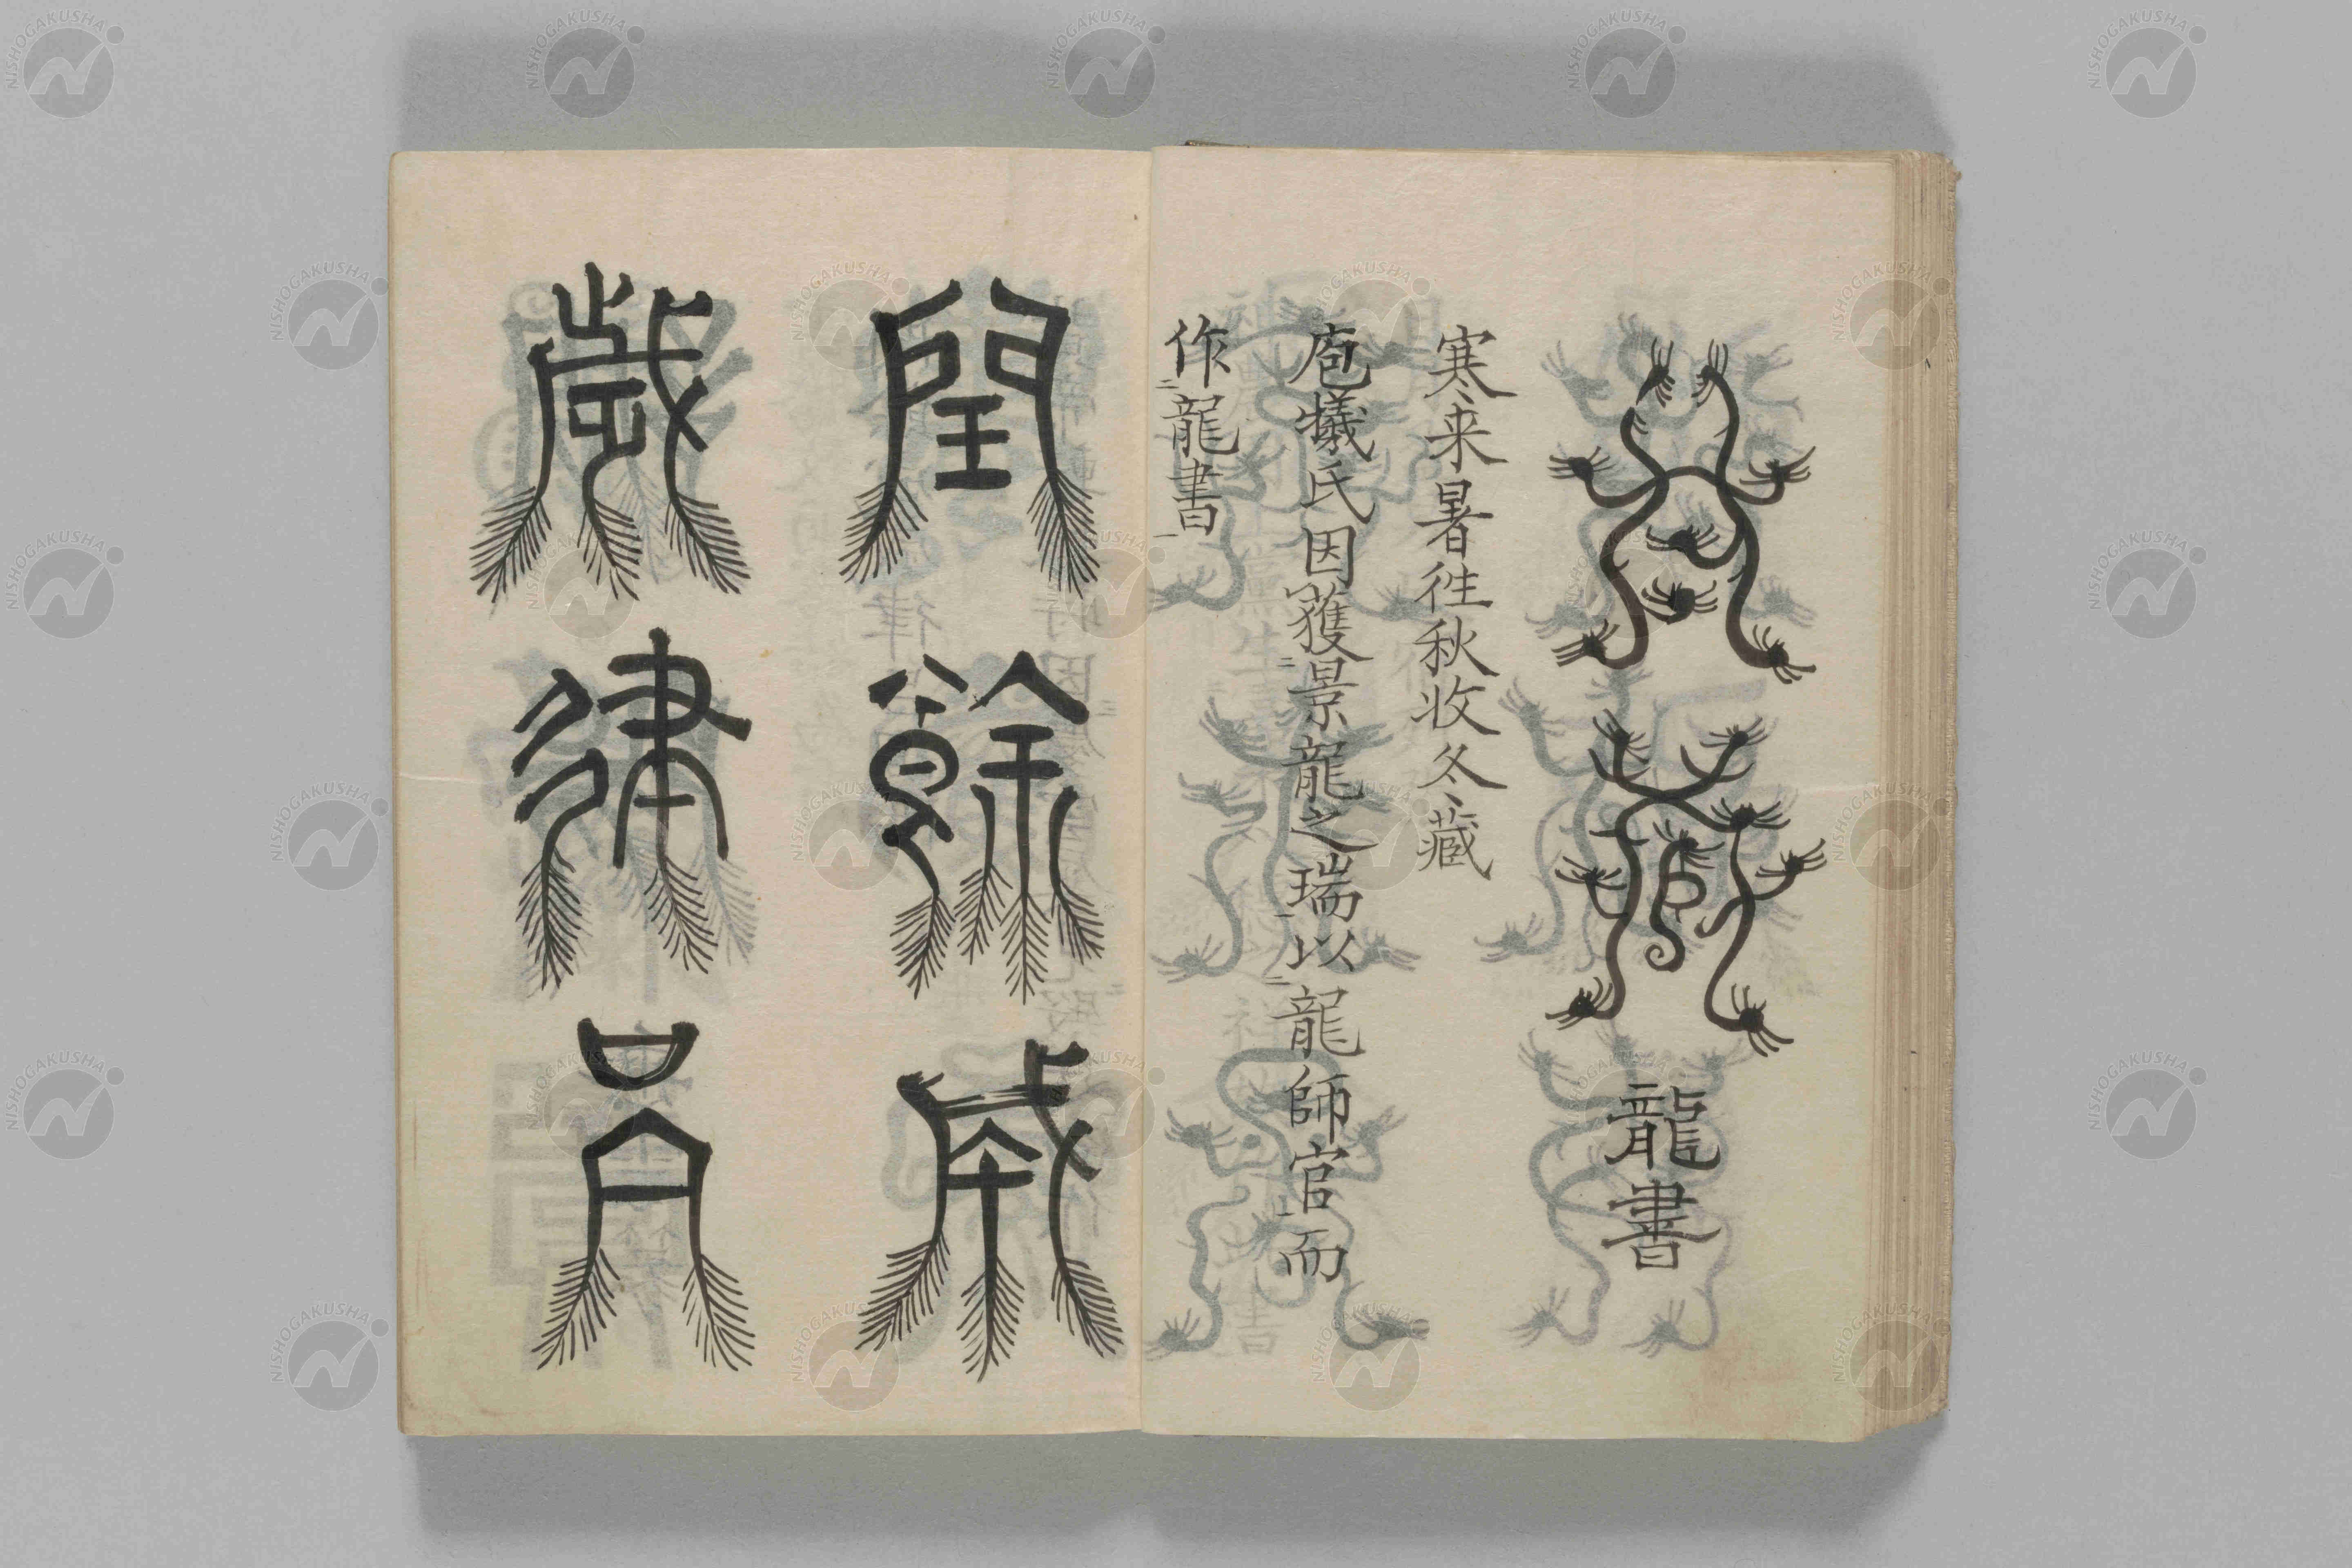 冬藏 龍書
寒来暑徃秋收冬藏
庖犠氏因獲景龍之瑞以龍師官而
作龍書
閏餘成
歲律呂
NISHOGAKUSHA